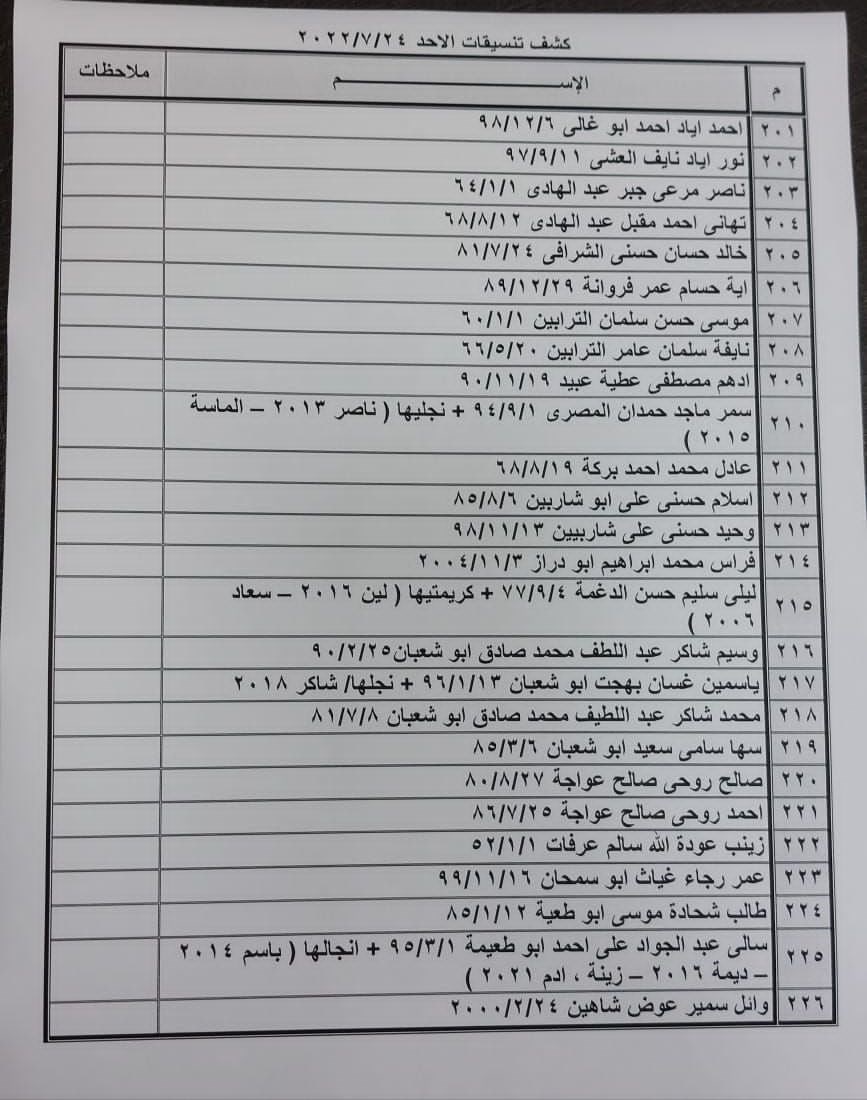 كشف تنسيقات الاحد ٢٠٢٢/٧/٢٤
م الإســـــــــــــــم ملاحظات
٢٠١ احمد اياد احمد ابو غالى ٩٨/١٢/٦
٢٠٢ نور اياد نايف العشى ٩٧/٩/١١
٢٠٣ ناصر مرعى جبر عبد الهادى ٦٤/١/١
٢٠٤ تهانى احمد مقبل عبد الهادى ٦٨/٨/١٢
٢٠٥ خالد حسان حسنى الشرافى ٨١/٧/٢٤
٢٠٦ اية حسام عمر فروانة ٨٩/١٢/٢٩
٢٠٧ موسى حسن سلمان الترابين ٦٠/١/١
٢٠٨ نايفة سلمان عامر الترابين ٦٦/٥/٢٠
٢٠٩ ادهم مصطفى عطية عبيد ٩٠/١١/١٩
٢١٠ سمر ماجد حمدان المصرى ٩٤/٩/١ + نجليها ( ناصر ٢٠١٣ – الماسة
٢٠١٥ )
٢١١ عادل محمد احمد بركة ٦٨/٨/١٩
٢١٢ اسلام حسنى على ابو شاربين ٨٥/٨/٦
٢١٣ وحيد حسنى على شاربيين ٩٨/١١/١٣
٢١٤ فراس محمد ابراهيم ابو دراز ٢٠٠٤/١١/٣
٢١٥ ليلى سليم حسن الدغمة ٧٧/٩/٤ + كريمتيها ( لين ٢٠١٦ – سعاد
٢٠٠٦ )
٢١٦ وسيم شاكر عبد اللطف محمد صادق ابو شعبان٩٠/٢/٢٥
٢١٧ ياسمين غسان بهجت ابو شعبان ٩٦/١/١٣ + نجلها/ شاكر ٢٠١٨
٢١٨ محمد شاكر عبد اللطيف محمد صادق ابو شعبان ٨١/٧/٨
٢١٩ سها سامى سعيد ابو شعبان ٨٥/٣/٦
٢٢٠ صالح روحى صالح عواجة ٨٠/٨/٢٧
٢٢١ احمد روحى صالح عواجة ٨٦/٧/٢٥
٢٢٢ زينب عودة الله سالم عرفات ٥٢/١/١
٢٢٣ عمر رجاء غياث ابو سمحان ٩٩/١١/١٦
٢٢٤ طالب شحادة موسى ابو طعية ٨٥/١/١٢
٢٢٥ سالى عبد الجواد على احمد ابو طعيمة ٩٥/٣/١ + انجالها ( باسم ٢٠١٤
– ديمة ٢٠١٦ – زينة ، ادم ٢٠٢١ )
٢٢٦ وائل سمير عوض شاهين ٢٠٠٠/٢/٢٤